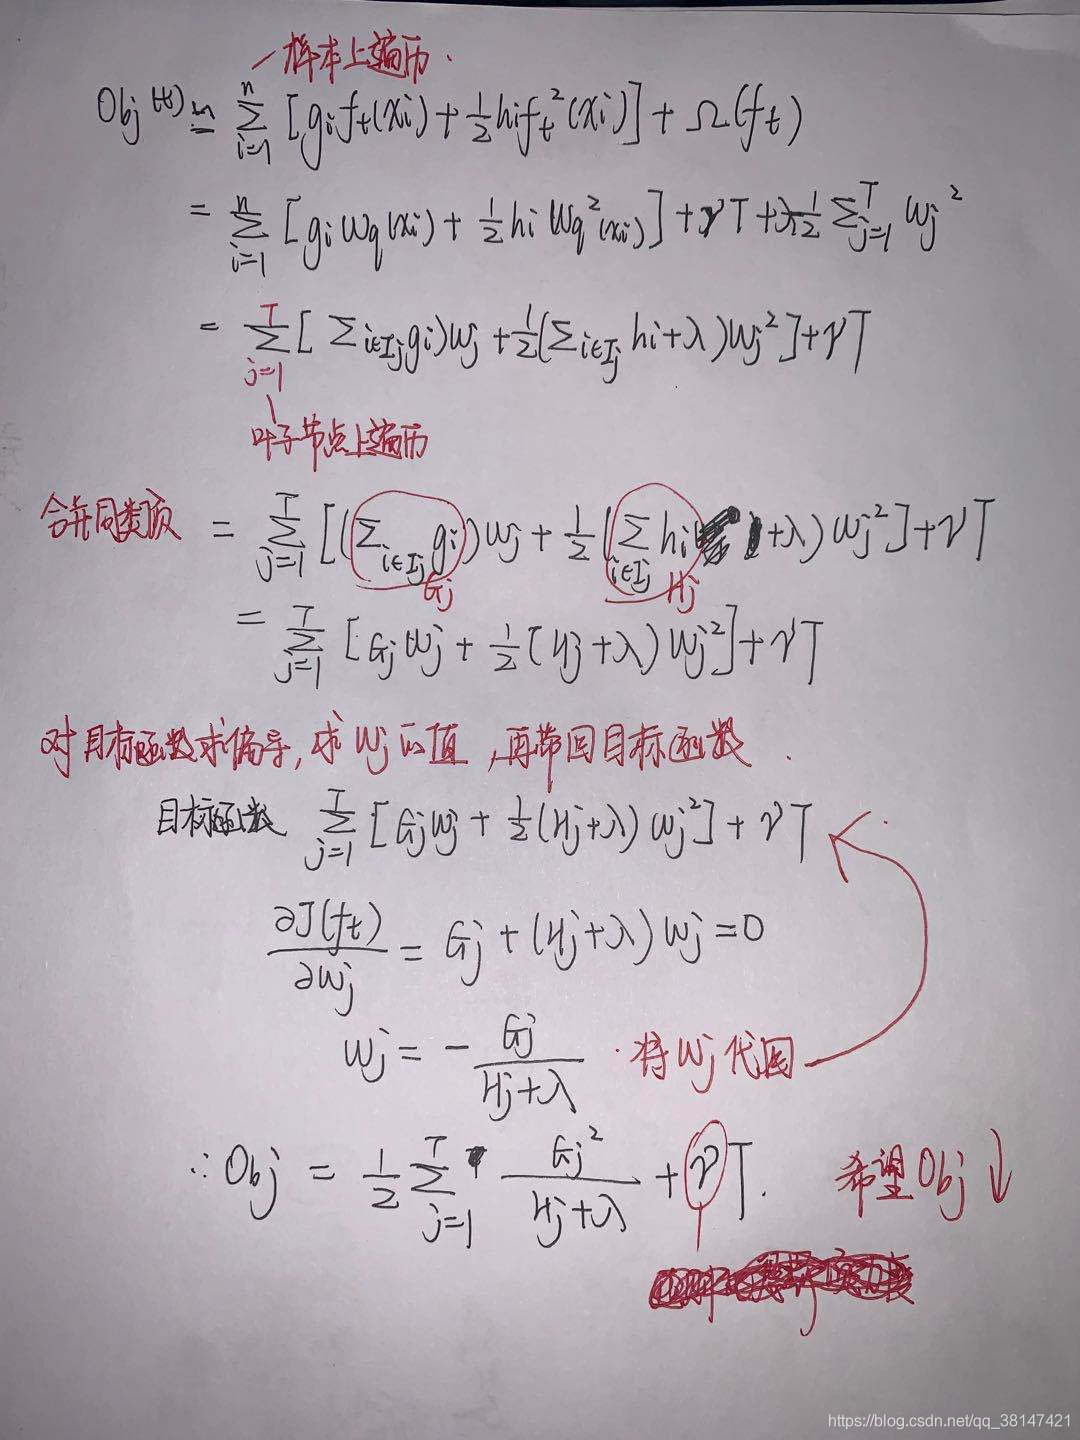 样本上遍历.
Obj^(t) ≃ Σ_{i=1}^{n} [g_i f_t(x_i) + 1/2 h_i f_t^2(x_i)] + Ω(f_t)
= Σ_{i=1}^{n} [g_i w_q(x_i) + 1/2 h_i w_q^2(x_i)] + γT + λ 1/2 Σ_{j=1}^{T} w_j^2
= Σ_{j=1}^{T} [Σ_{i∈I_j} g_i) w_j + 1/2 (Σ_{i∈I_j} h_i + λ) w_j^2] + γT
叶子节点上遍历
合并同类项 = Σ_{j=1}^{T} [(Σ_{i∈I_j} g_i) w_j + 1/2 (Σ_{i∈I_j} h_i + λ) w_j^2] + γT
G_j H_j
= Σ_{j=1}^{T} [G_j w_j + 1/2 (H_j + λ) w_j^2] + γT
对目标函数求偏导, 求 w_j 的值, 再带回目标函数.
目标函数 Σ_{j=1}^{T} [G_j w_j + 1/2 (H_j + λ) w_j^2] + γT
∂J(f_t)/∂w_j = G_j + (H_j + λ) w_j = 0
w_j = - G_j/(H_j + λ) . 将 w_j 代回
∴ Obj = 1/2 Σ_{j=1}^{T} G_j^2/(H_j + λ) + γT. 希望 Obj ↓
https://blog.csdn.net/qq_38147421